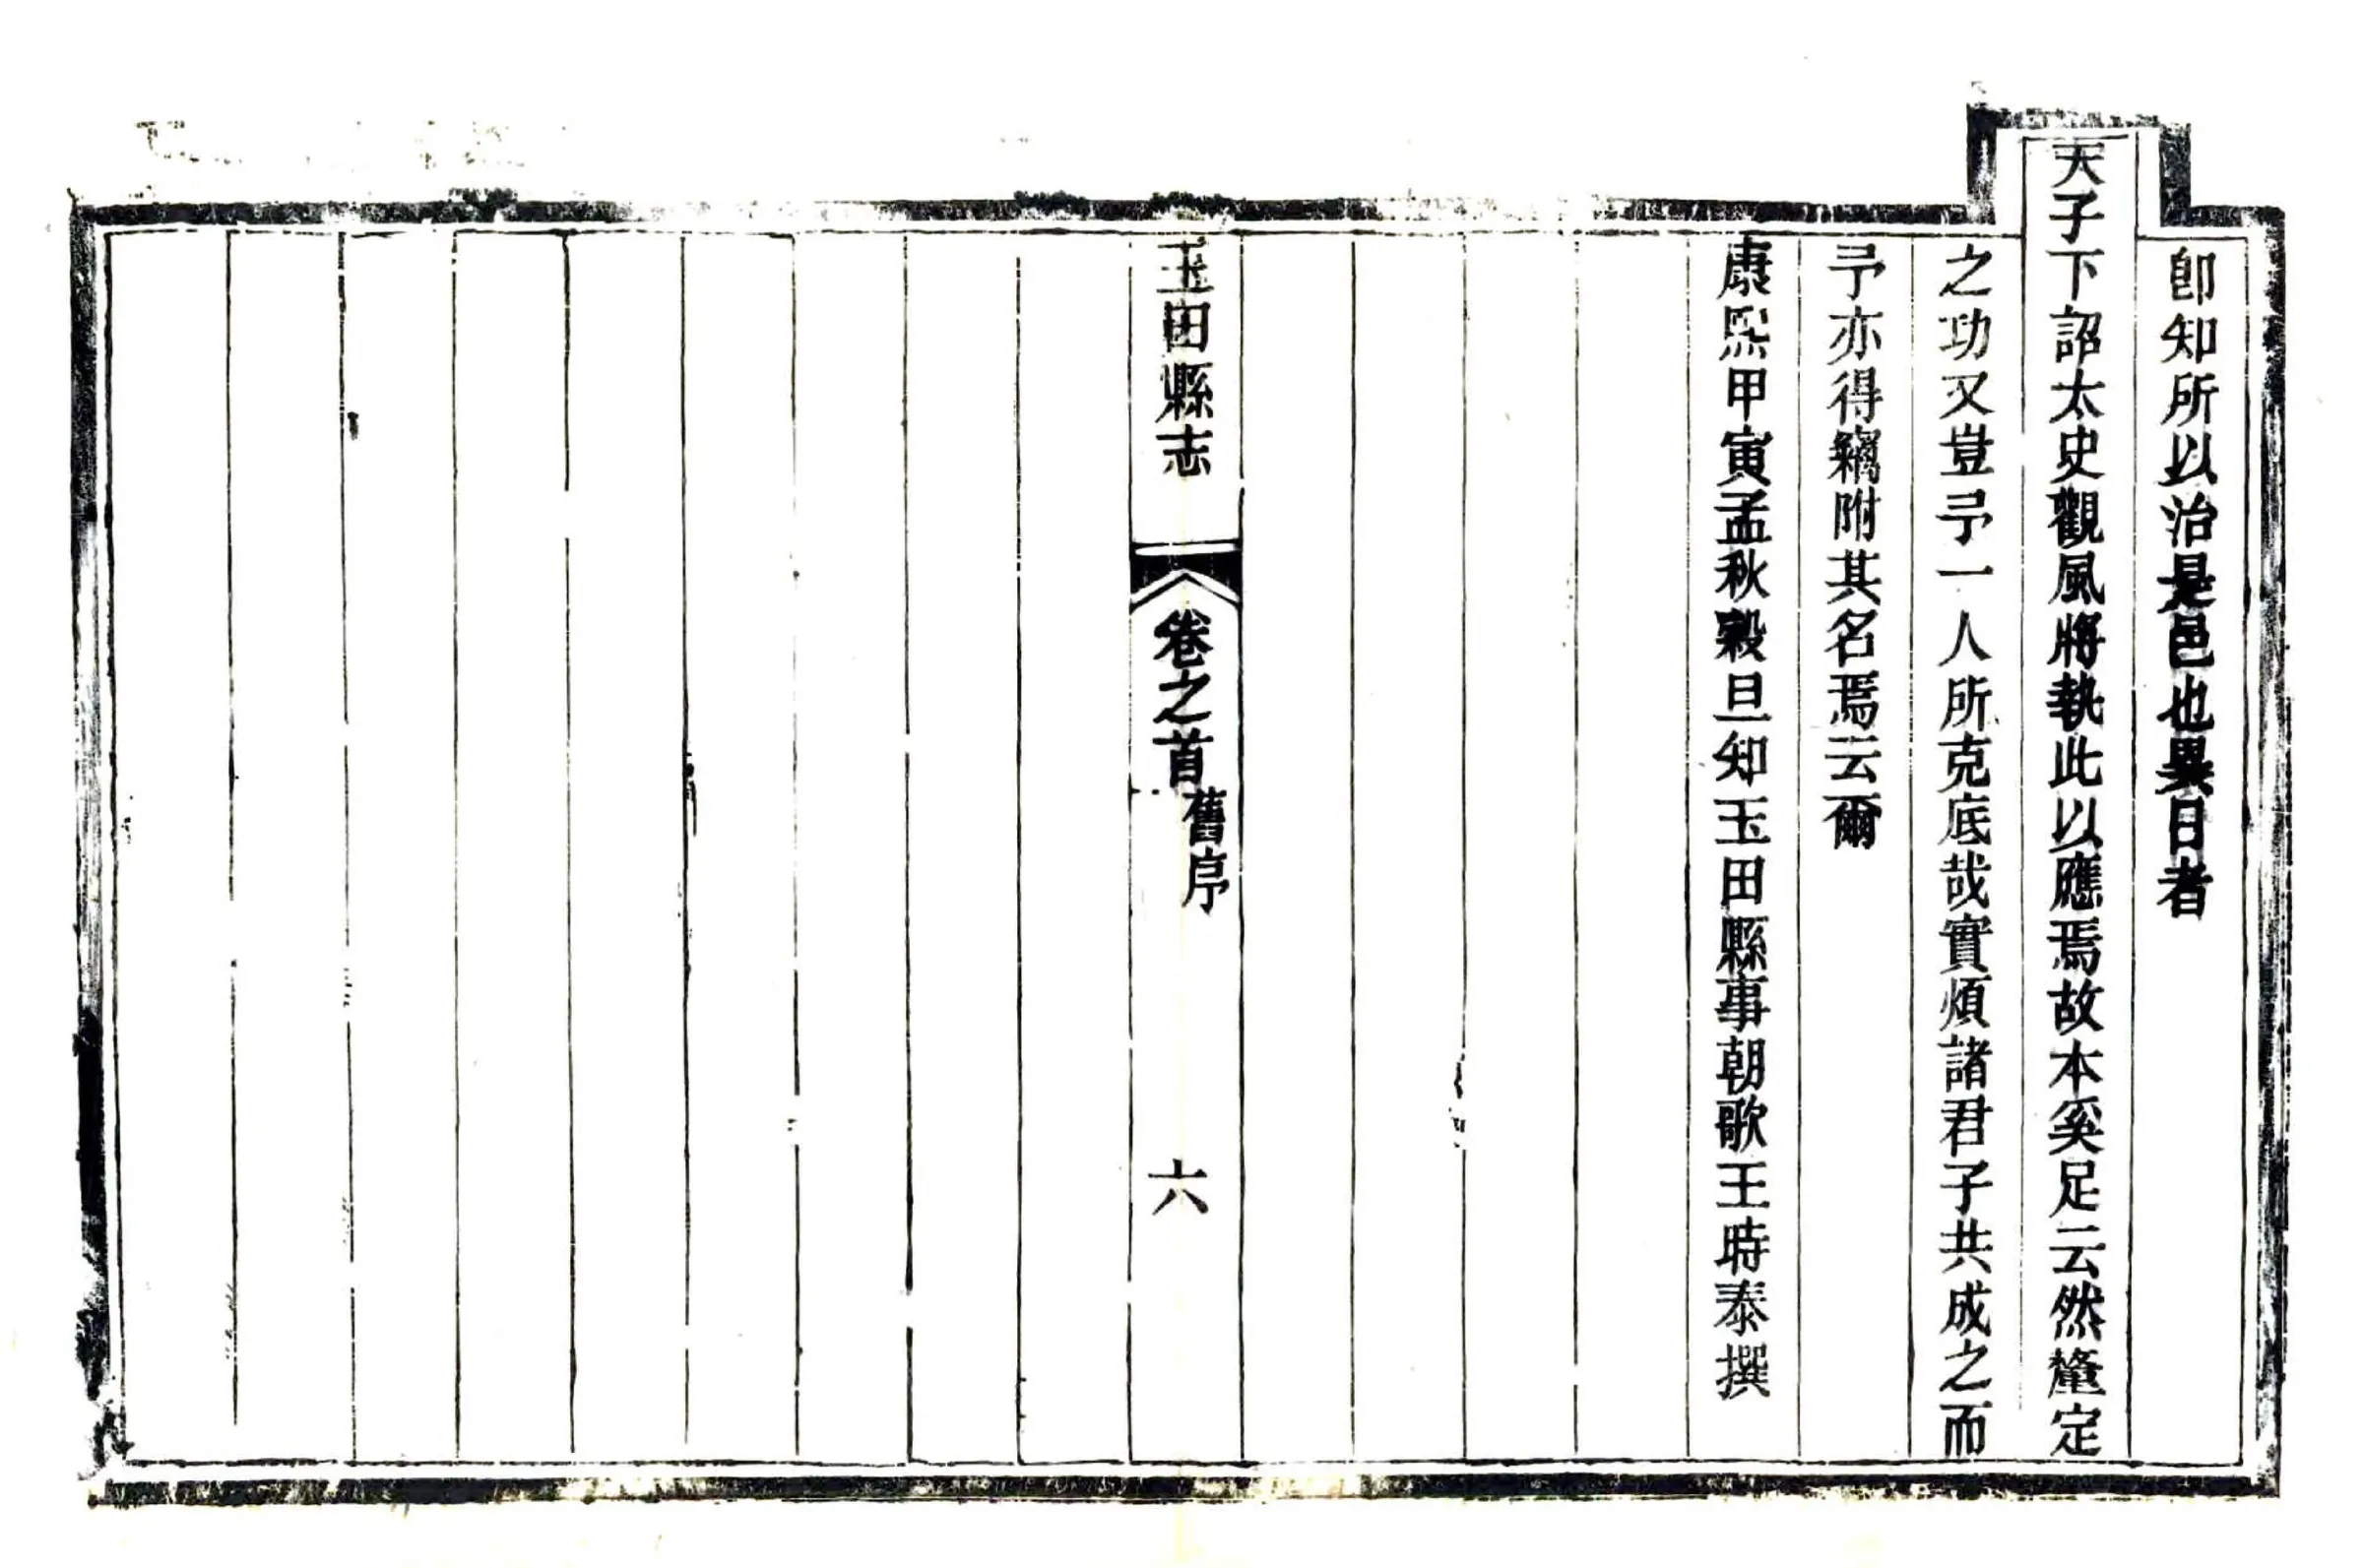 卽知所以治是邑也異日者
天子下詔太史觀風將執此以應焉故本奚足云然釐定
之功又豈予一人所克底哉實煩諸君子共成之而
予亦得竊附其名焉云爾
康熙甲寅孟秋穀旦知玉田縣事朝歌王時泰撰
玉田縣志
卷之首
舊序
六